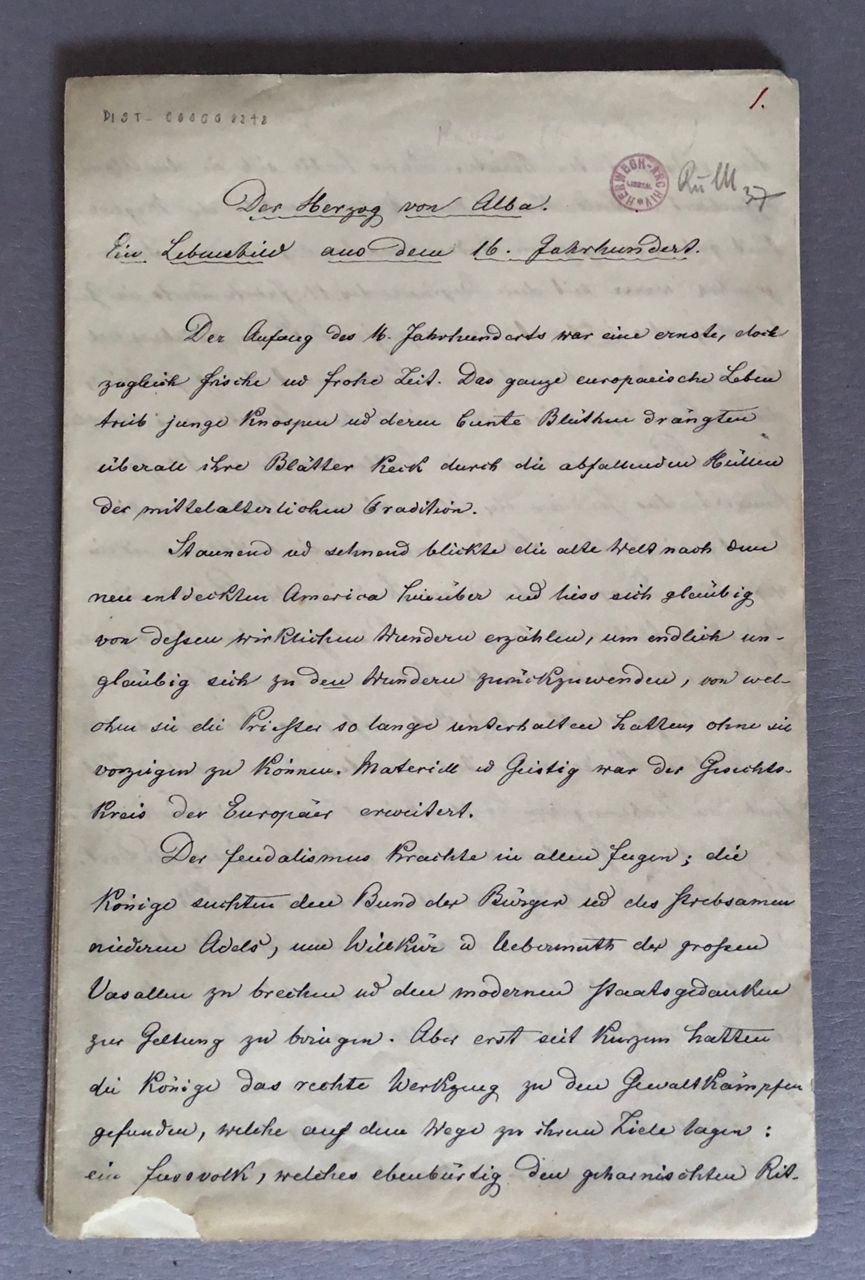 DIST- 00000 8248
1.
HERWEGH-ARCHIV
LIESTAL
37
Der Herzog von Alba.
Ein Lebensbild aus dem 16. Jahrhundert.
Der Anfang des 16. Jahrhunderts war eine ernste, doch
zugleich frische ud frohe Zeit. Das ganze europaeische Leben
trieb junge Knospen ud deren bunte Blüthen drängten
überall ihre Blätter keck durch die abfallenden Hüllen
der mittelalterlichen Tradition.
Staunend ud sehnend blickte die alte Welt nach dem
neu entdeckten America hinüber und liess sich gläubig
von dessen wirklichen Wundern erzählen, um endlich un-
gläubig sich zu den Wundern zurückzuwenden, von wel-
chen sie die Priester so lange unterhalten hatten, ohne sie
vorzeigen zu können. Materiell ud Geistig war der Gesichts-
kreis der Europäer erweitert.
Der Feudalismus krachte in allen Fugen; die
Könige suchten den Bund der Bürger ud des strebsamen
niederen Adels, um Willkür ud Uebermuth der grossen
Vasallen zu brechen ud den modernen Staatsgedanken
zur Geltung zu bringen. Aber erst seit Kurzem hatten
die Könige das rechte Werkzeug zu den Gewaltkämpfen
gefunden, welche auf dem Wege zu ihrem Ziele lagen:
ein Fussvolk, welches ebenbürtig den geharnischten Rit-